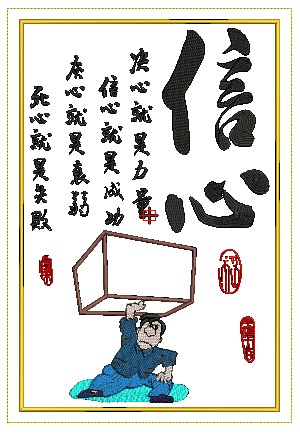 信心
決心就是力量
信心就是成功
灰心就是衰弱
死心就是失敗